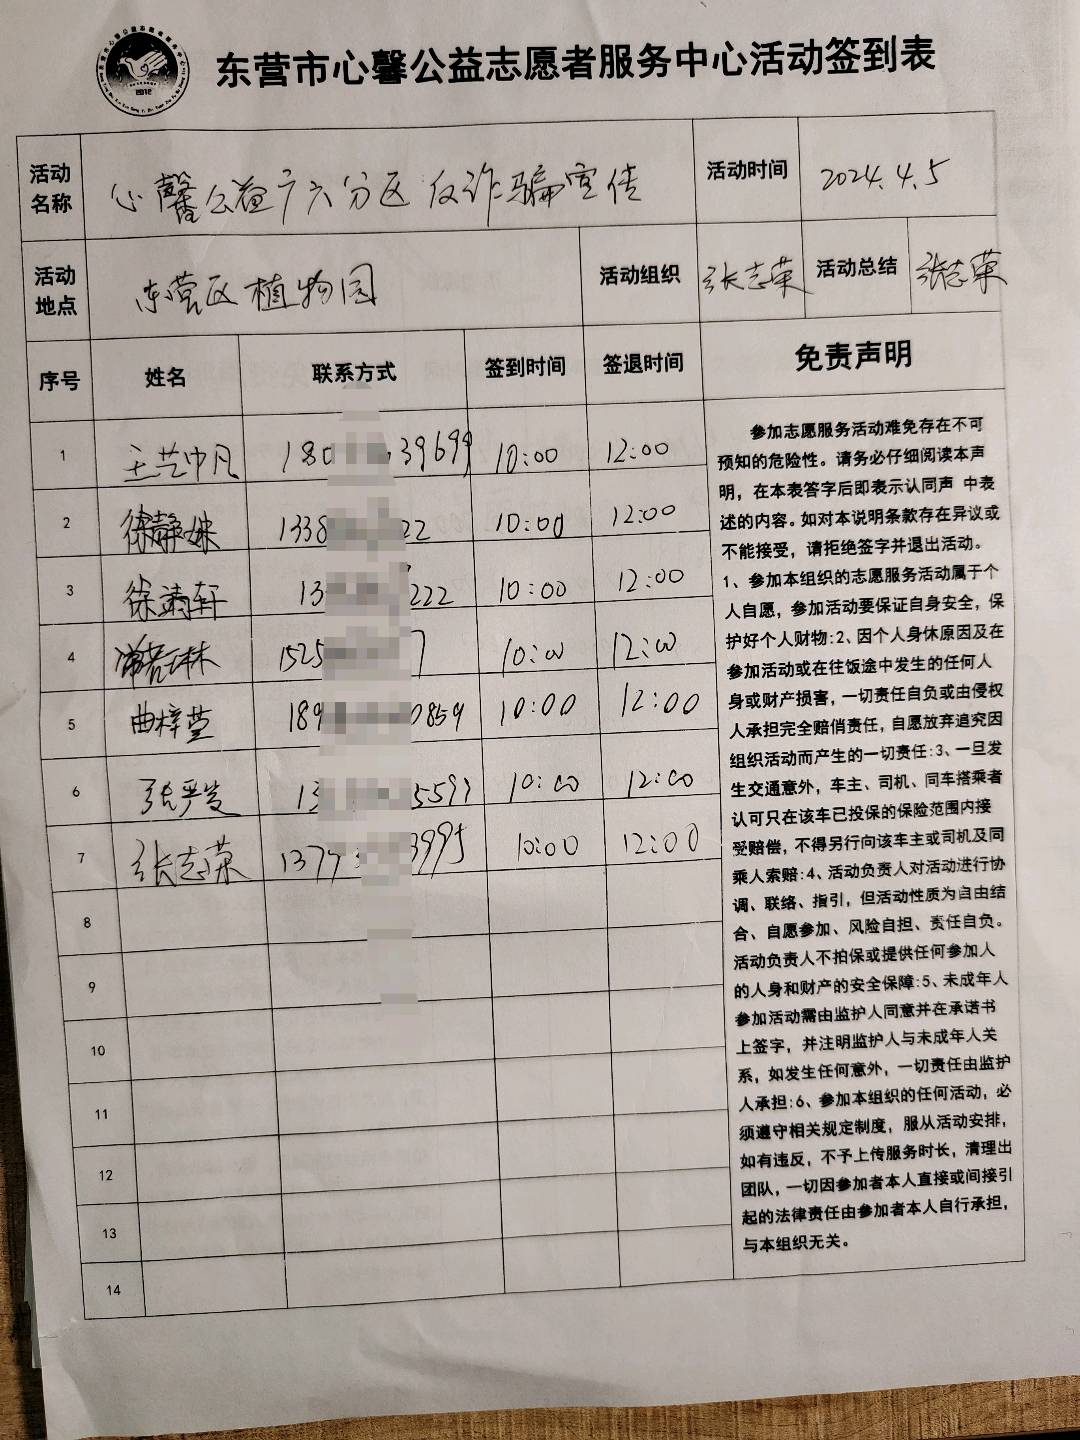 东营市心馨公益志愿者服务中心活动签到表
活动名称 心馨公益广六分区反诈骗宣传 活动时间 2024.4.5
活动地点 东营区植物园 活动组织 张志荣 活动总结 张志荣
序号 姓名 联系方式 签到时间 签退时间 免责声明
1 王艺中凡 180 39699 10:00 12:00
2 徐静姝 1338 22 10:00 12:00
3 徐靖轩 13 222 10:00 12:00
4 1525 7 10:00 12:00
5 曲梓萱 189 0859 10:00 12:00
6 张严发 13 5599 10:00 12:00
7 张志荣 1377 3995 10:00 12:00
8
9
10
11
12
13
14
参加志愿服务活动难免存在不可
预知的危险性。请务必仔细阅读本声
明，在本表答字后即表示认同声 中表
述的内容。如对本说明条款存在异议或
不能接受，请拒绝签字并退出活动。
1、参加本组织的志愿服务活动属于个
人自愿，参加活动要保证自身安全，保
护好个人财物:2、因个人身休原因及在
参加活动或在往饭途中发生的任何人
身或财产损害，一切责任自负或由侵权
人承担完全赔俏责任，自愿放弃追究因
组织活动而产生的一切责任:3、一旦发
生交通意外，车主、司机、同车搭乘者
认可只在该车已投保的保险范围内接
受赔偿，不得另行向该车主或司机及同
乘人索赔:4、活动负责人对活动进行协
调、联络、指引，但活动性质为自由结
合、自愿参加、风险自担、责任自负。
活动负责人不拍保或提供任何参加人
的人身和财产的安全保障:5、未成年人
参加活动需由监护人同意并在承诺书
上签字，并注明监护人与未成年人关
系，如发生任何意外，一切责任由监护
人承担:6、参加本组织的任何活动，必
须遵守相关规定制度，服从活动安排，
如有违反，不予上传服务时长，清理出
团队，一切因参加者本人直接或间接引
起的法律责任由参加者本人自行承担，
与本组织无关。